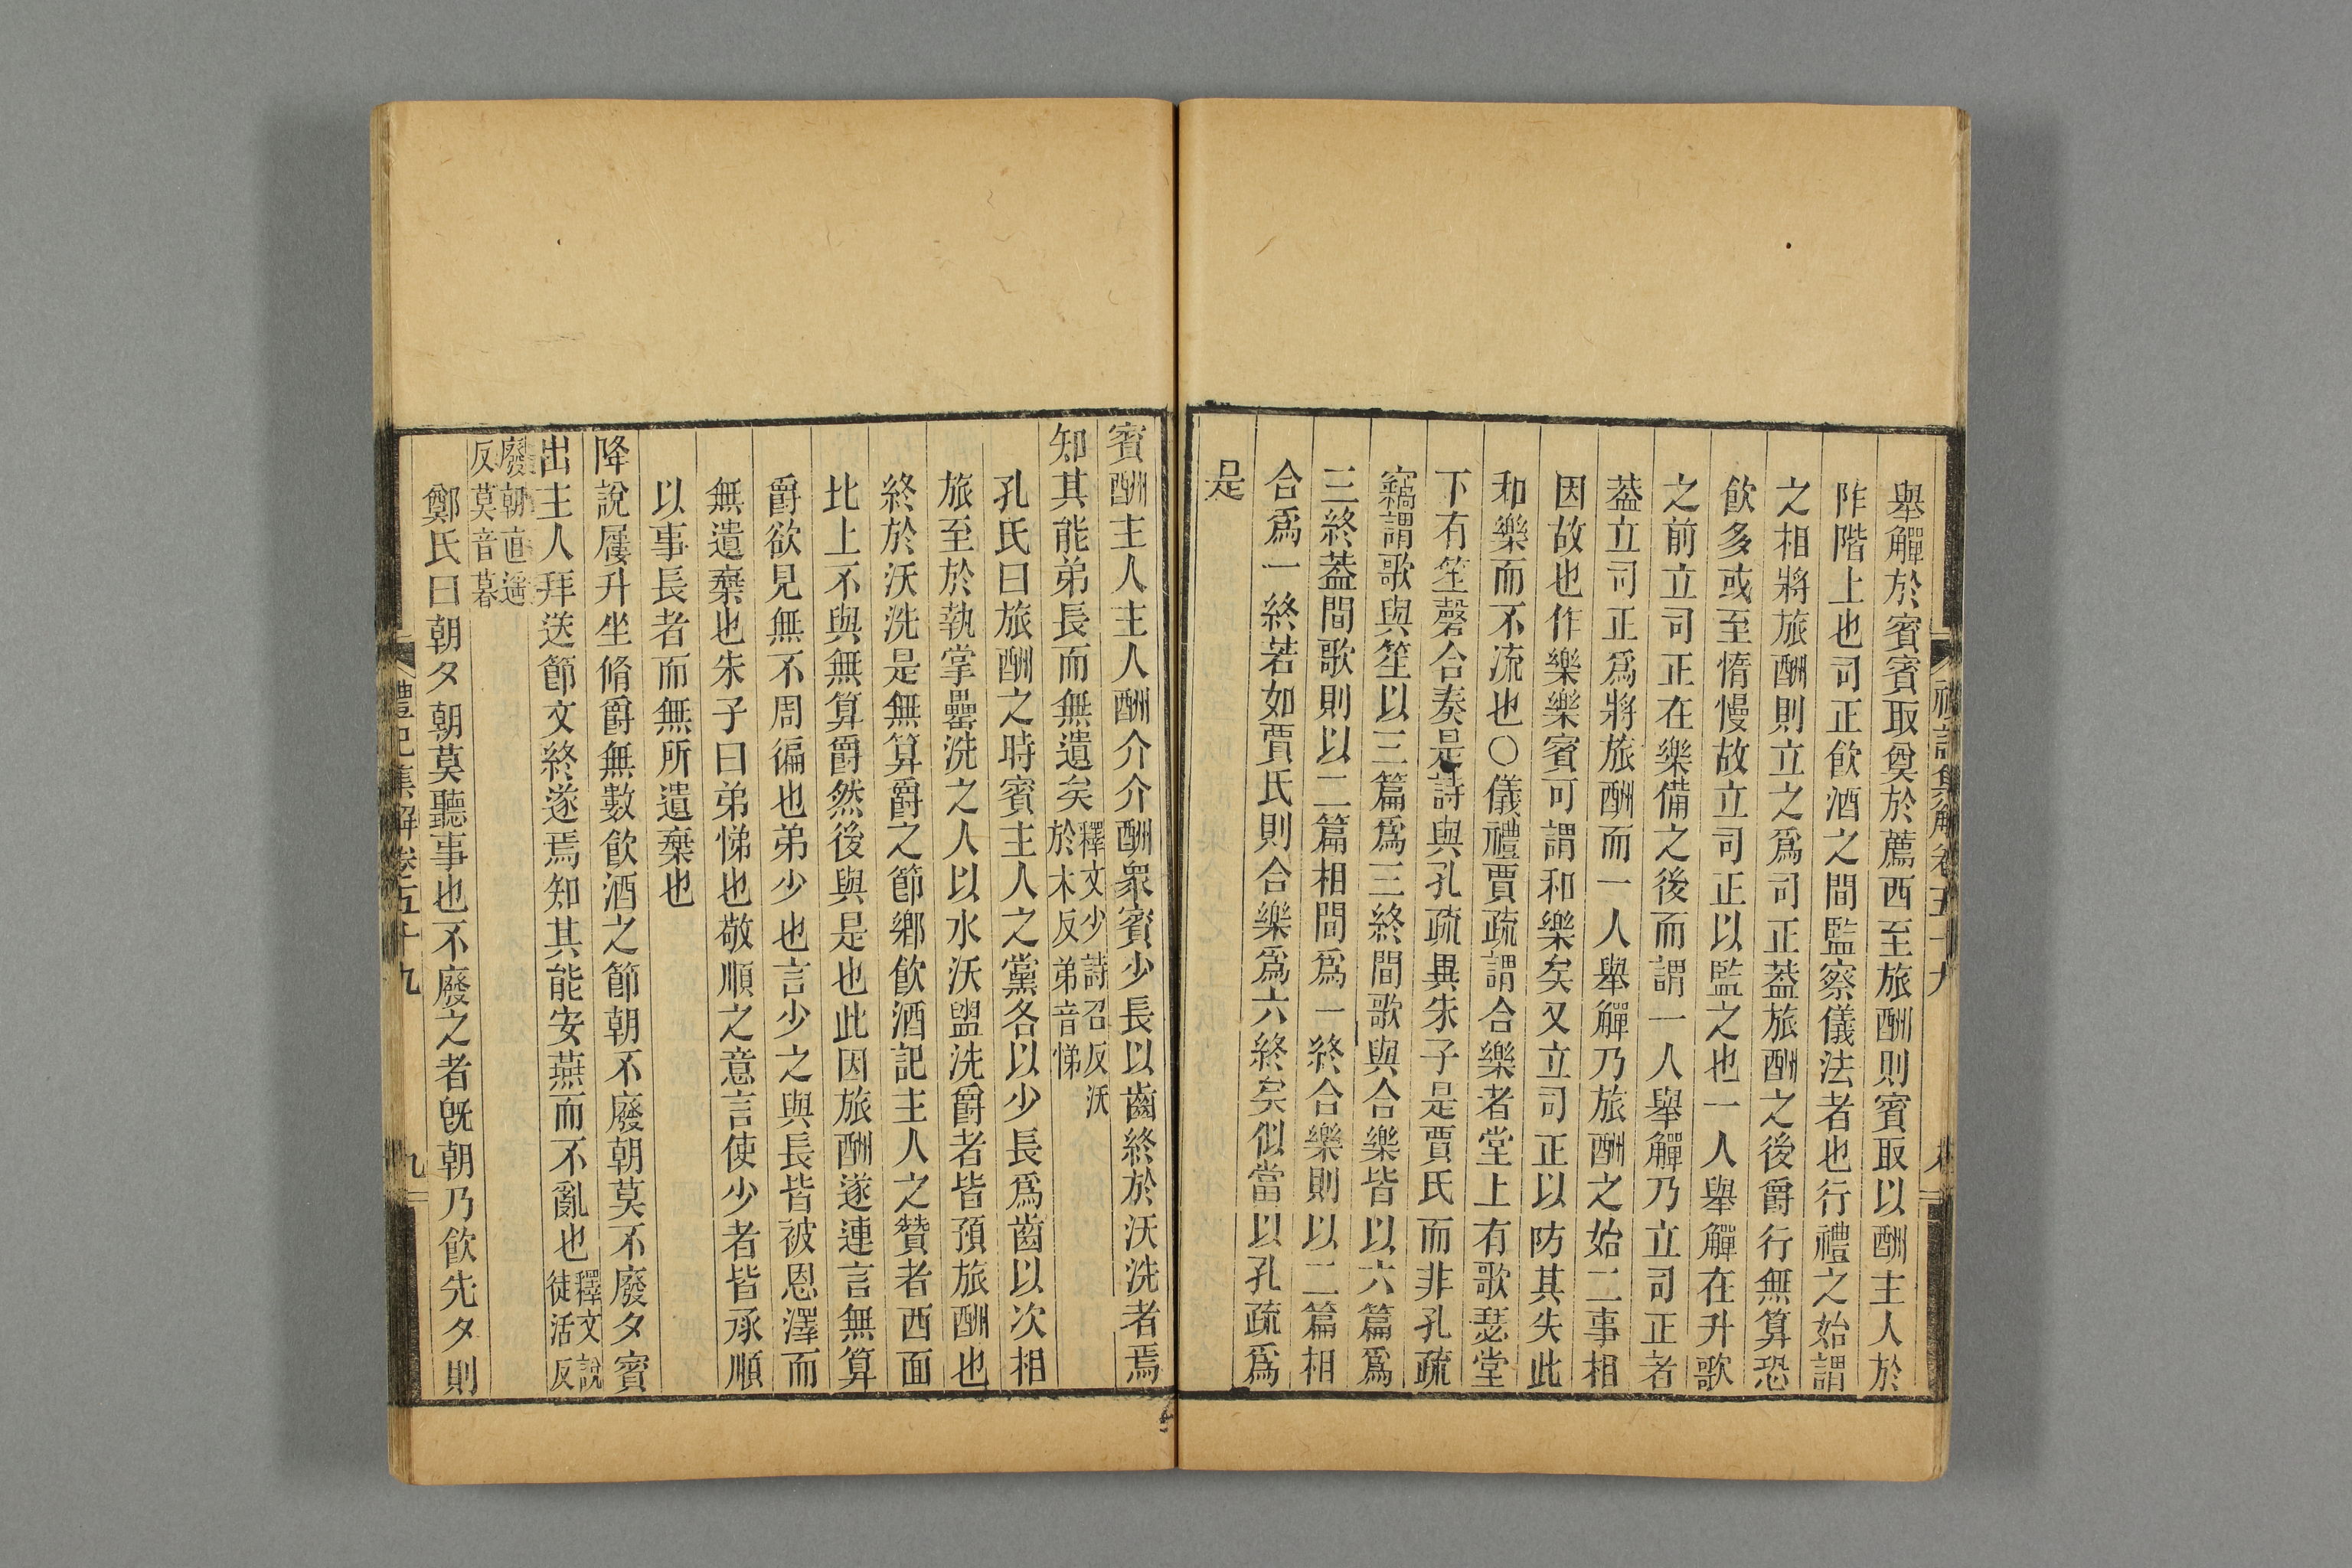 禮記集解卷五十九
八
舉觶於賓賓取奠於薦西至旅酬則賓取以酬主人於
阼階上也司正飮酒之間監察儀法者也行禮之始謂
之相將旅酬則立之爲司正葢旅酬之後爵行無算恐
飮多或至惰慢故立司正以監之也一人舉觶在升歌
之前立司正在樂備之後而謂一人舉觶乃立司正者
葢立司正爲將旅酬而一人舉觶乃旅酬之始二事相
因故也作樂樂賓可謂和樂矣又立司正以防其失此
和樂而不流也○儀禮賈疏謂合樂者堂上有歌瑟堂
下有笙磬合奏是詩與孔疏異朱子是賈氏而非孔疏
竊謂歌與笙以三篇爲三終間歌與合樂皆以六篇爲
三終葢間歌則以二篇相間爲一終合樂則以二篇相
合爲一終若如賈氏則合樂爲六終矣似當以孔疏爲
是
賓酬主人主人酬介介酬衆賓少長以齒終於沃洗者焉
知其能弟長而無遺矣釋文少詩召反沃
於木反弟音悌
孔氏曰旅酬之時賓主人之黨各以少長爲齒以次相
旅至於執掌罍洗之人以水沃盥洗爵者皆預旅酬也
終於沃洗是無算爵之節鄉飮酒記主人之贊者西面
北上不與無算爵然後與是也此因旅酬遂連言無算
爵欲見無不周徧也弟少也言少之與長皆被恩澤而
無遺棄也朱子曰弟悌也敬順之意言使少者皆承順
以事長者而無所遺棄也
降說屨升坐脩爵無數飮酒之節朝不廢朝莫不廢夕賓
出主人拜送節文終遂焉知其能安燕而不亂也釋文說
徒活反
廢朝直遥
反莫音暮
鄭氏曰朝夕朝莫聽事也不廢之者旣朝乃飮先夕則
禮記集解卷五十九
九